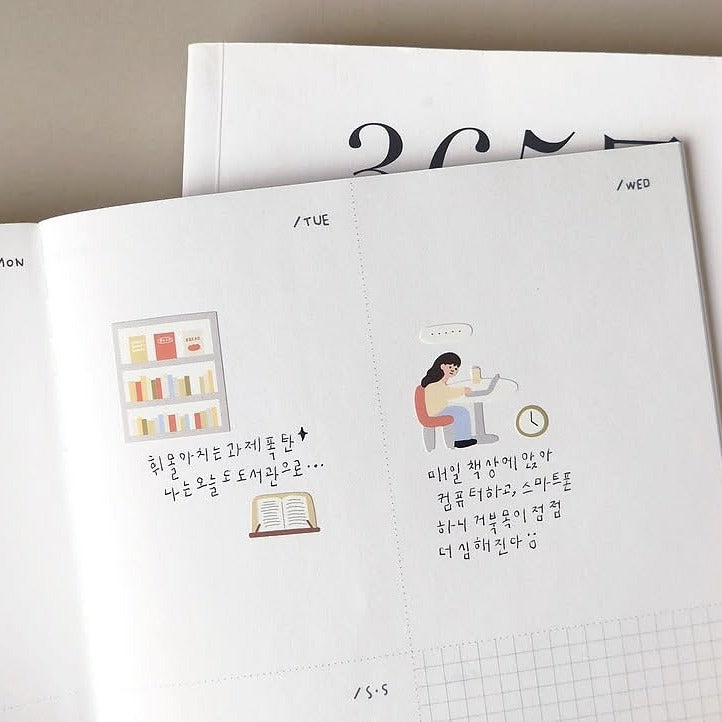 365
/WED
/TUE
MON
BREAD
휘몰아치는 과제폭탄
나는 오늘도 도서관으로...
매일 책상에 앉아
컴퓨터하고, 스마트폰
하니 거북목이 점점
더 심해진다
/S·S